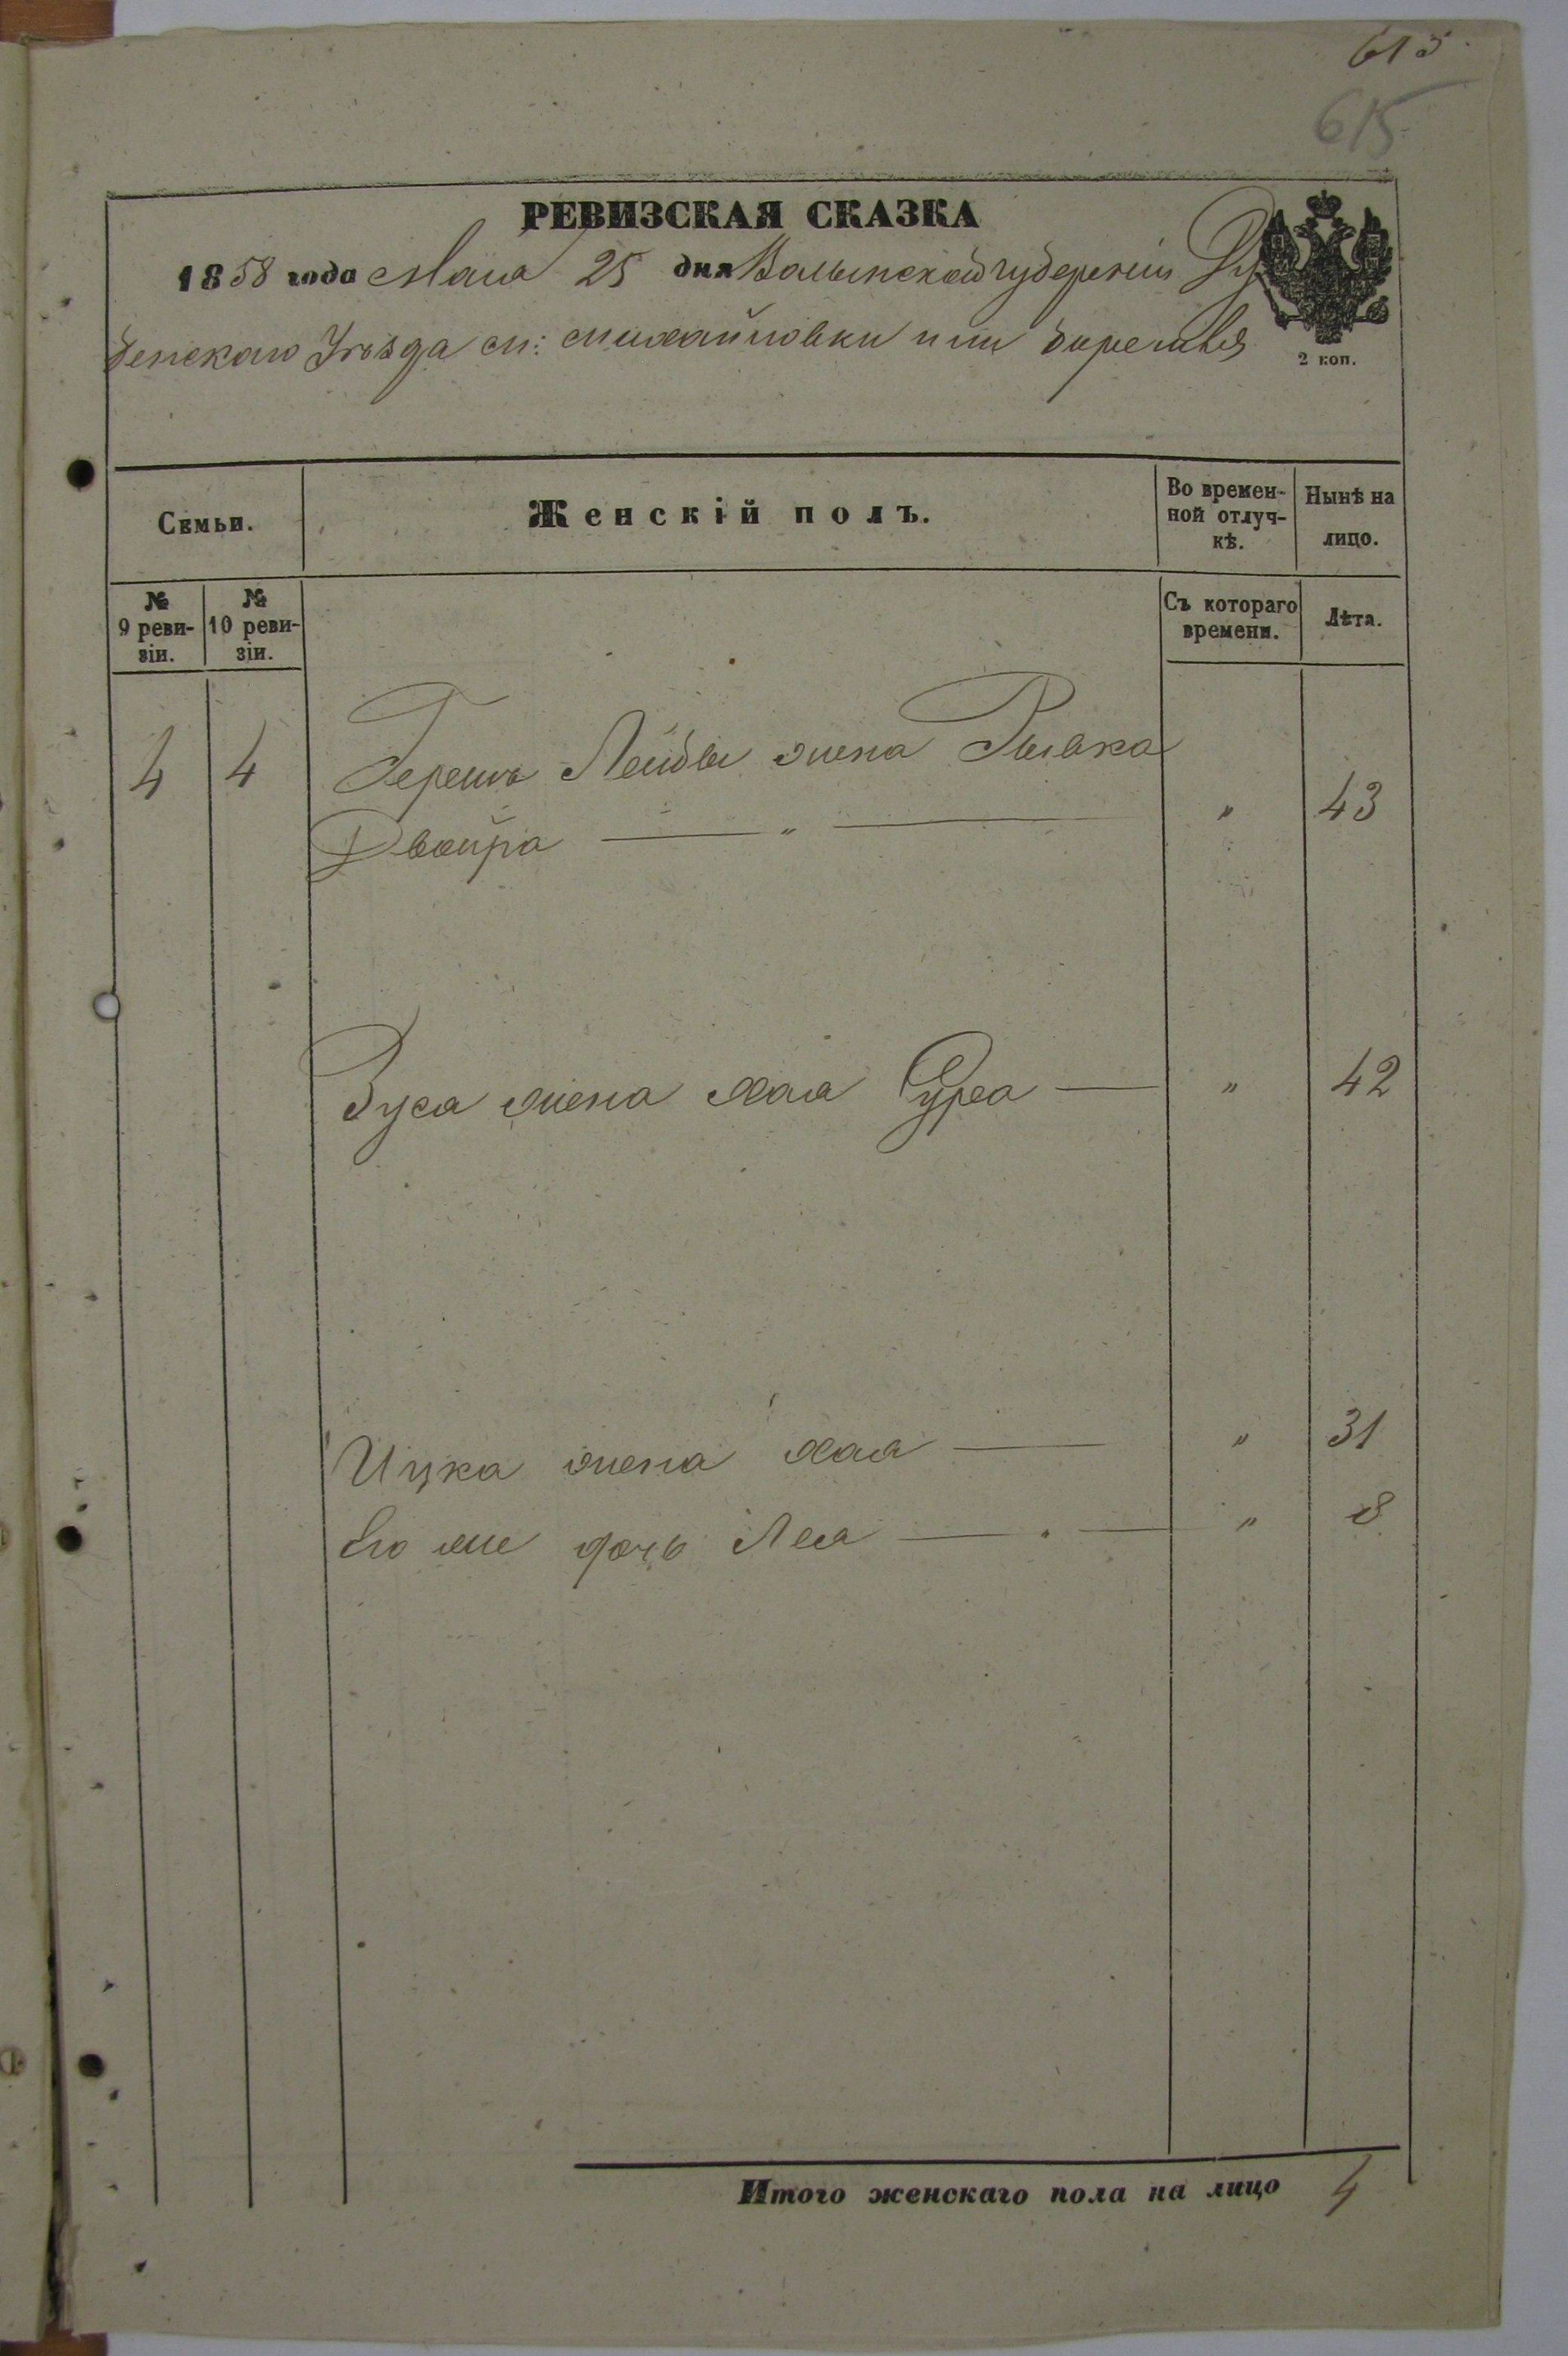 615
615
РЕВИЗСКАЯ СКАЗКА
1858 года Мая 25 дня Волынской губерніи Ду
бенскаго Уѣзда м:
2 коп.
Семьи. Женскій полъ. Во времен-
ной отлуч-
кѣ. Нынѣ на
лицо.
№
9 реви-
зіи. №
10 реви-
зіи. Съ котораго
времени. Лѣта.
4 4 Герешъ Лейбы жена Рывка
Двойра — " — " 43
Зуса жена Хая Сура — " 42
Ицка жена Хая — " 31
Его же дочь Лея — " 8
Итого женскаго пола на лицо 4